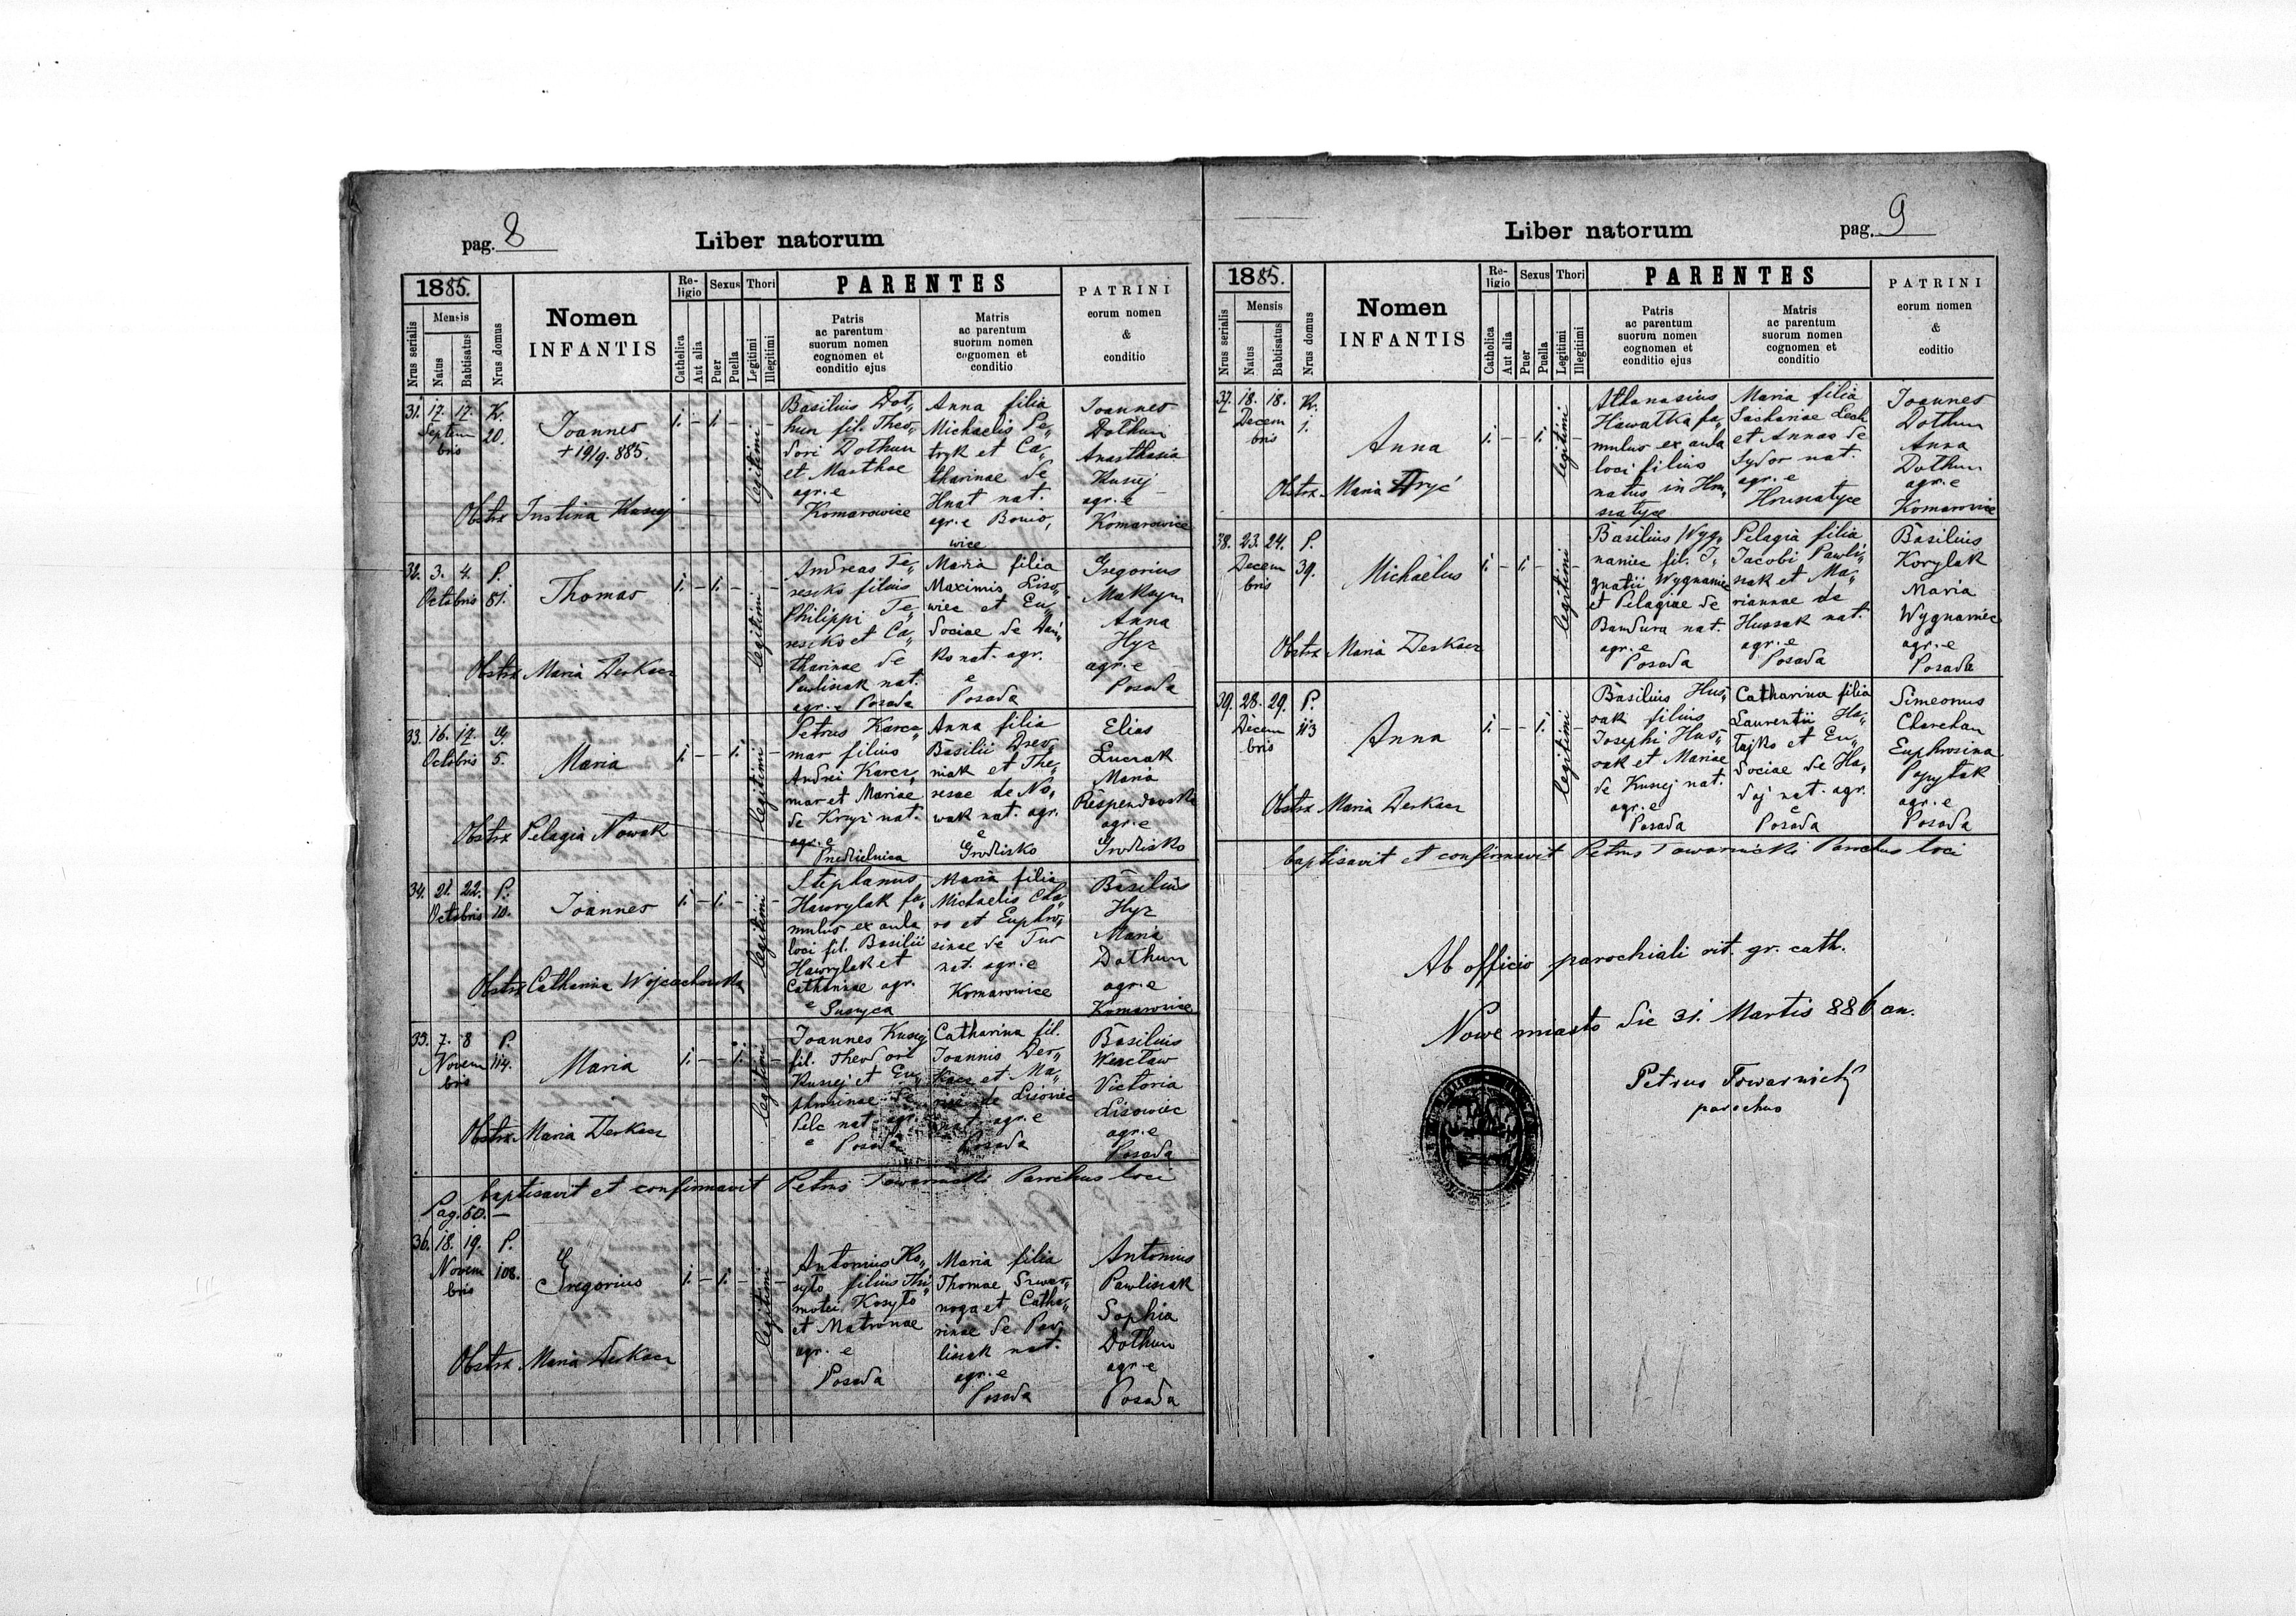 pag. 8
Liber natorum
1885.
Nrus serialis
Mensis
Natus
Babtisatus
Nrus domus
Nomen
INFANTIS
Religio
Catholica
Aut alia
Sexus
Puer
Puella
Thori
Legitimi
Illegitimi
PARENTES
Patris
ac parentum
suorum nomen
cognomen et
conditio ejus
Matris
ac parentum
suorum nomen
cognomen et
conditio
PATRINI
eorum nomen
&
conditio
31. 17. 17. K.
Septem
bris
20.
Joannes
+ 19/9. 885.
Obstrx Justina Kusiej
1. – 1. – legitimi –
Basilius Dot„
hun fil. Theo„
dori Dothun
et Marthae
agr. e
Komarowice
Anna filia
Michaelis Pe„
tryk et Ca„
tharinae de
Hnat nat.
agr. e Bonio„
wice
Joannes
Dothun
Anasthasia
Kusiej
agr. e
Komarowice
32. 3. 4. P.
Octobris 81.
Thomas
Obstrx Maria Derkacz
1. – 1. – legitimi –
Andreas Te„
reszko filius
Philippi Te„
reszko et Ca„
tharinae de
Pawliszak nat.
agr. e Posada
Maria filia
Maximis Liso„
wiec et Eu„
dociae de
ko nat. agr.
e
Posada
Gregorius
Maksym
Anna
Hyz
agr. e
Posada
33. 16. 17. G.
Octobris 5.
Maria
Obstrx Pelagia Nowak
1. – – 1. legitimi
Petrus Karcz„
mar filius
Andrei Karcz„
mar et Mariae
de Kryz nat.
agr. e
Predzielnica
Anna filia
Basilii Drew„
niak et The„
resae de No„
wak nat. agr.
e
Grodzisko
Elias
Luczak
Maria
Respendowska
agr. e
Grodzisko
34. 21. 22. P.
Octobris 10.
Joannes
Obstrx Catharina Wojciechowska
1. – 1. – legitimi
Stephanus
Hawrylak fa„
mulus ex aula
loci fil. Basilii
Hawrylak et
Catharinae agr.
e Suszyca
Maria filia
Michaelis Cha„
ro et Euphro„
sinae de Tur
nat. agr. e
Komarowice
Basilius
Hyz
Maria
Dothun
agr. e
Komarowice
35. 7. 8 P.
Novem
bris
114.
Maria
Obstrx. Maria Derkacz
1. – – 1. legitimi –
Joannes Kusiej
fil. Theodori
Kusiej et Eu„
phrosinae de
Pelc nat. agr.
e Posada
Catharina fil.
Joannis Der„
kacz et Ma„
riae de Lisowiec
nat. agr. e
Posada
Basilius
Weactaw
Victoria
Lisowiec
agr. e
Posada
baptisavit et confirmavit Petrus Towarnicki Parochus loci
Pag. 60. –
36. 18. 19. P.
Novem
bris
108.
Gregorius
Obstrx. Maria Derkacz
1. – 1. – legitimi –
Antonius Ko„
syto filius Thi„
motei Kosyto
et Matronae
agr. e
Posada
Maria filia
Thomae Szwar„
noga et Catha„
rinae de Paw„
liszak nat.
agr. e
Posada
Antonius
Pawliszak
Sophia
Dothun
agr. e
Posada
Liber natorum
pag. 9
1885.
Nrus serialis
Mensis
Natus
Babtisatus
Nrus domus
Nomen
INFANTIS
Religio
Catholica
Aut alia
Sexus
Puer
Puella
Thori
Legitimi
Illegitimi
PARENTES
Patris
ac parentum
suorum nomen
cognomen et
conditio ejus
Matris
ac parentum
suorum nomen
cognomen et
conditio
PATRINI
eorum nomen
&
coditio
37. 18. 18. K.
Decem
bris
1.
Anna
Obstrx. Maria Hryć
1. – – 1. legitimi –
Athanasius
Hawatka fa„
mulus ex aula
loci filius
natus in Hru„
szatyce
Maria filia
Zachariae Lech
et Annae de
Sydor nat.
agr. e
Hruszatyce
Joannes
Dothun
Anna
Dothun
agr. e
Komarowice
38. 23. 24. P.
Decem
bris
39.
Michaelus
Obstrx Maria Derkacz
1. – 1. – legitimi –
Basilius Wyg„
naniec fil. I„
gnatii Wygnaniec
et Pelagiae de
Bandura nat.
agr. e
Posada
Pelagia filia
Jacobi Pawli„
szak et Ma„
riannae de
Hussak nat.
agr. e
Posada
Basilius
Korylak
Maria
Wygnaniec
agr. e
Posada
39. 28. 29. P.
Decem
bris
113
Anna
Obstrx Maria Derkacz
1. – – 1. legitimi –
Basilius Hus„
sak filius
Josephi Hus„
sak et Mariae
de Kusiej nat.
agr. e
Posada
Catharina filia
Laurentii Ha„
tajko et Eu„
dociae de Ha„
daj nat. agr.
e
Posada
Simeonus
Charchan
Euphrosina
agr. e
Posada
baptisavit et confirmavit Petrus Towarnicki Parochus loci
Ab officio parochiali rit. gr. cath.
Nowe miasto die 31. Martis 886 an.
Petrus Towarnicki
parochus